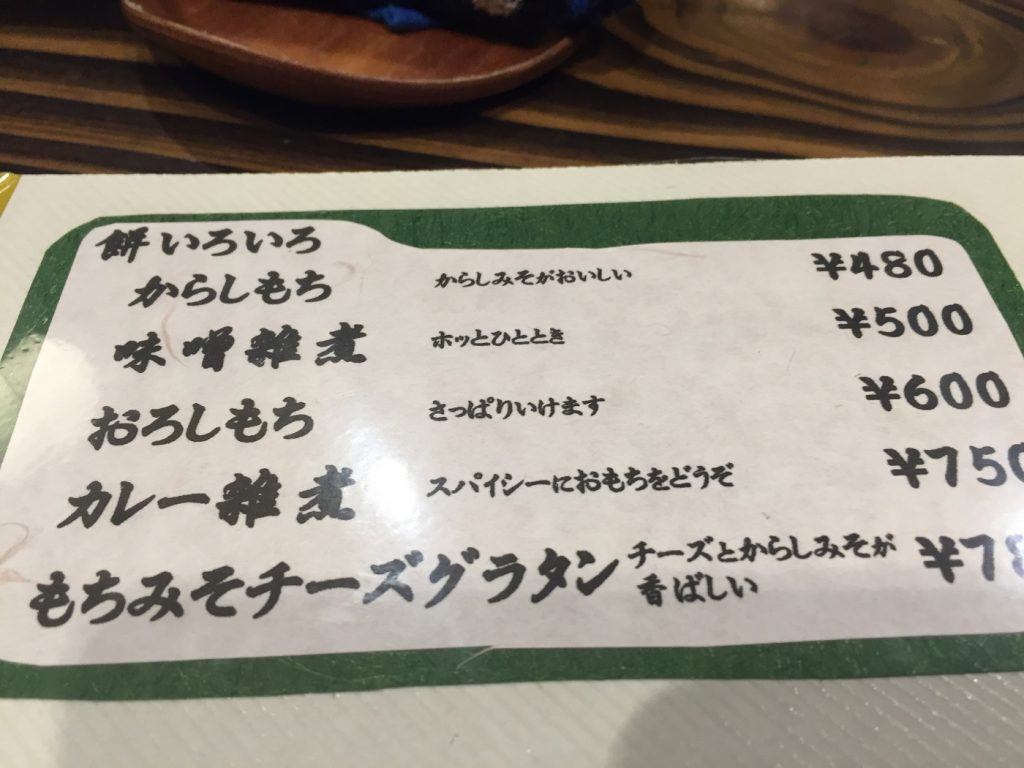 餅いろいろ
からしもち からしみそがおいしい ¥480
味噌雑煮 ホッとひととき ¥500
おろしもち さっぱりいけます ¥600
カレー雑煮 スパイシーにおもちをどうぞ ¥750
もちみそチーズグラタン チーズとからしみそが
香ばしい